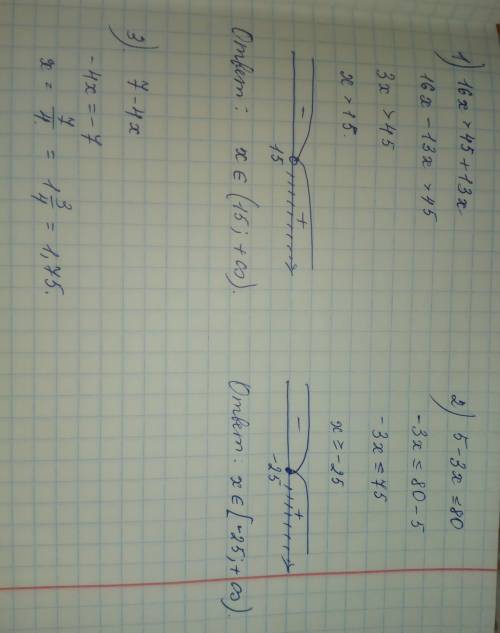 1) 16x > 45 + 13x
16x - 13x > 45
3x > 45
x > 15.
- +
15
Ответ: x ∈ (15; +∞).
2) 5 - 3x = 80
-3x = 80 - 5
-3x = 75
x = -25
- +
-25
Ответ: x ∈ [-25; +∞).
3) 7 - 4x
-4x = -7
x = 7/4 = 1 3/4 = 1,75.